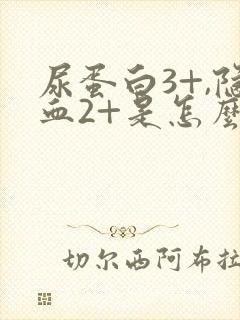 尿蛋白3+,隐
血2+是怎麼
切尔西阿布拉